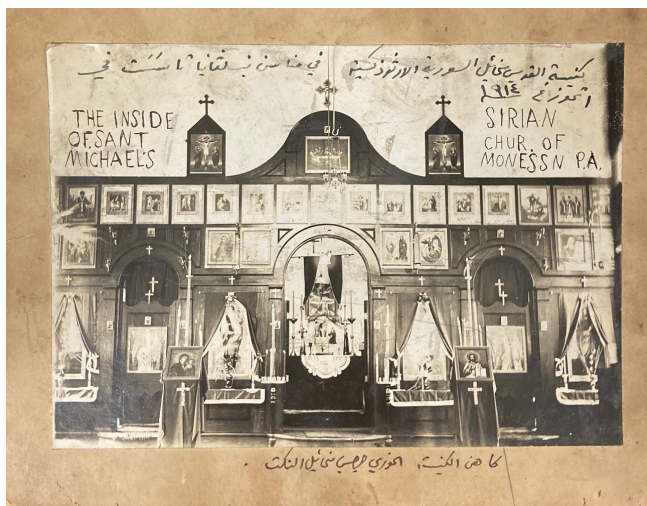 كنيسة القديس مخائيل السورية الارثوذكسية في مناسن بنسلفانيا تاسست في
١ تموز ١٩١٤
THE INSIDE
OF SANT
MICHAEL'S
SIRIAN
CHUR. OF
MONESSN P.A.
كاهن الكنيسة الخوري جرجس مخائيل